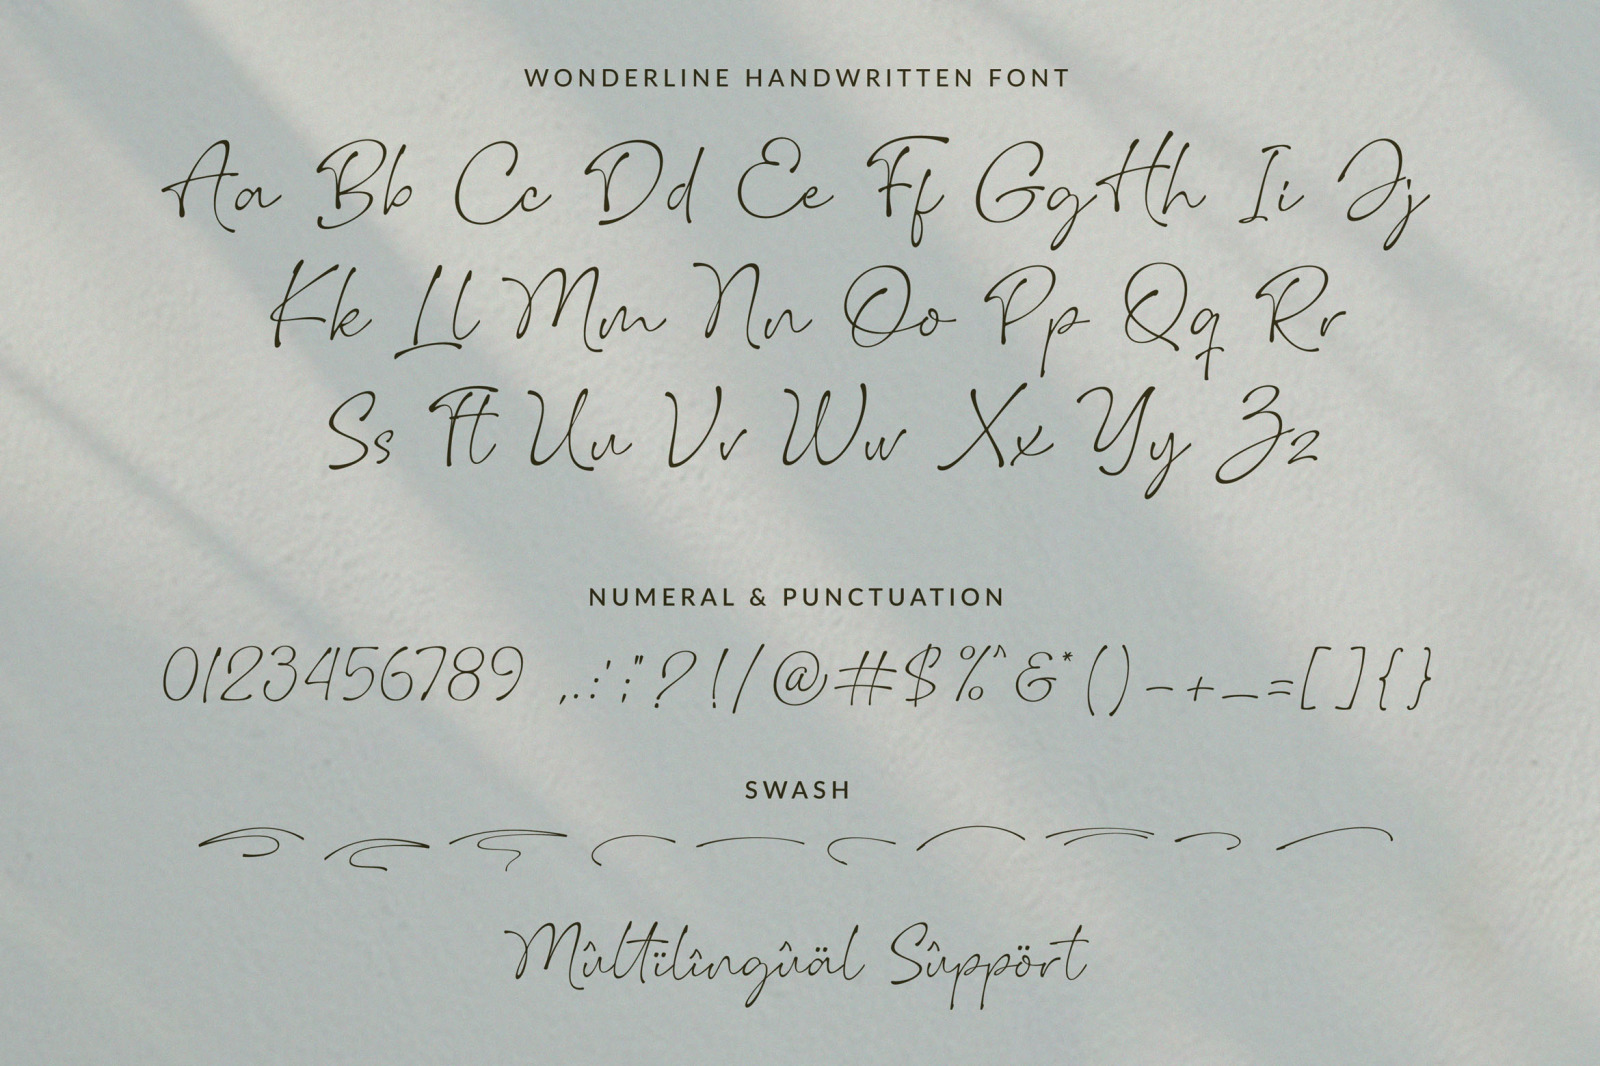 WONDERLINE HANDWRITTEN FONT
Aa Bb Cc Dd Ee Ff Gg Hh Ii Jj
Kk Ll Mm Nn Oo Pp Qq Rr
Ss Tt Uu Vv Ww Xx Yy Zz
NUMERAL & PUNCTUATION
0123456789 ,.:';"?!/@#$%^&*()-+_=[]{}
SWASH
Mûltïlîngûäl Sûppört